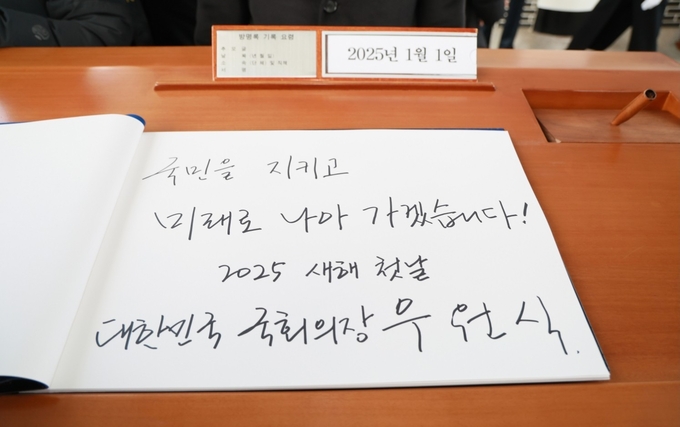 방명록 기록 요령
2025년 1월 1일
국민을 지키고
미래로 나아 가겠습니다!
2025 새해 첫날
대한민국 국회의장 우 원 식.